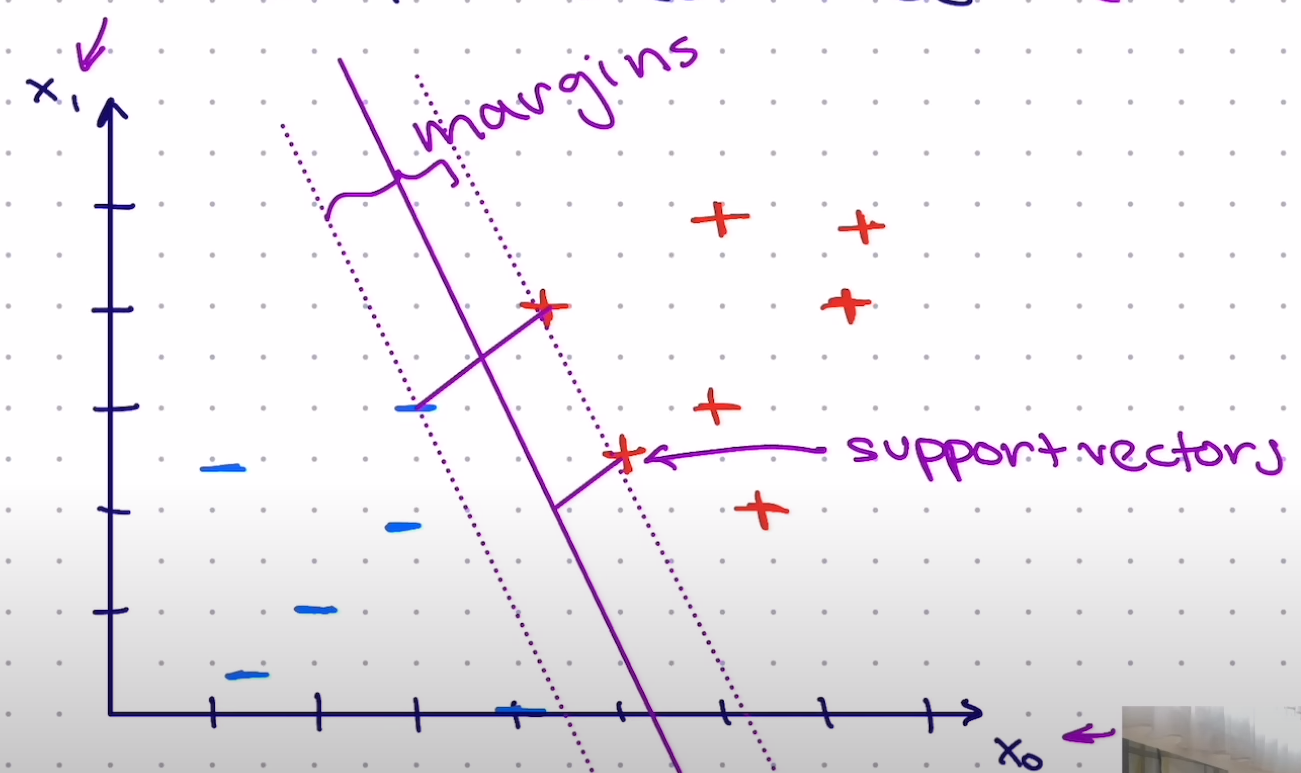 margins
x₁
support vectors
x₀